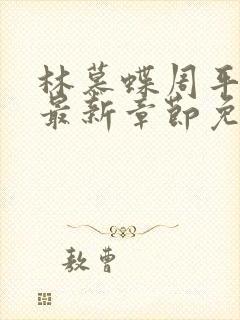 林慕蝶周平
最新章节免
敖曹